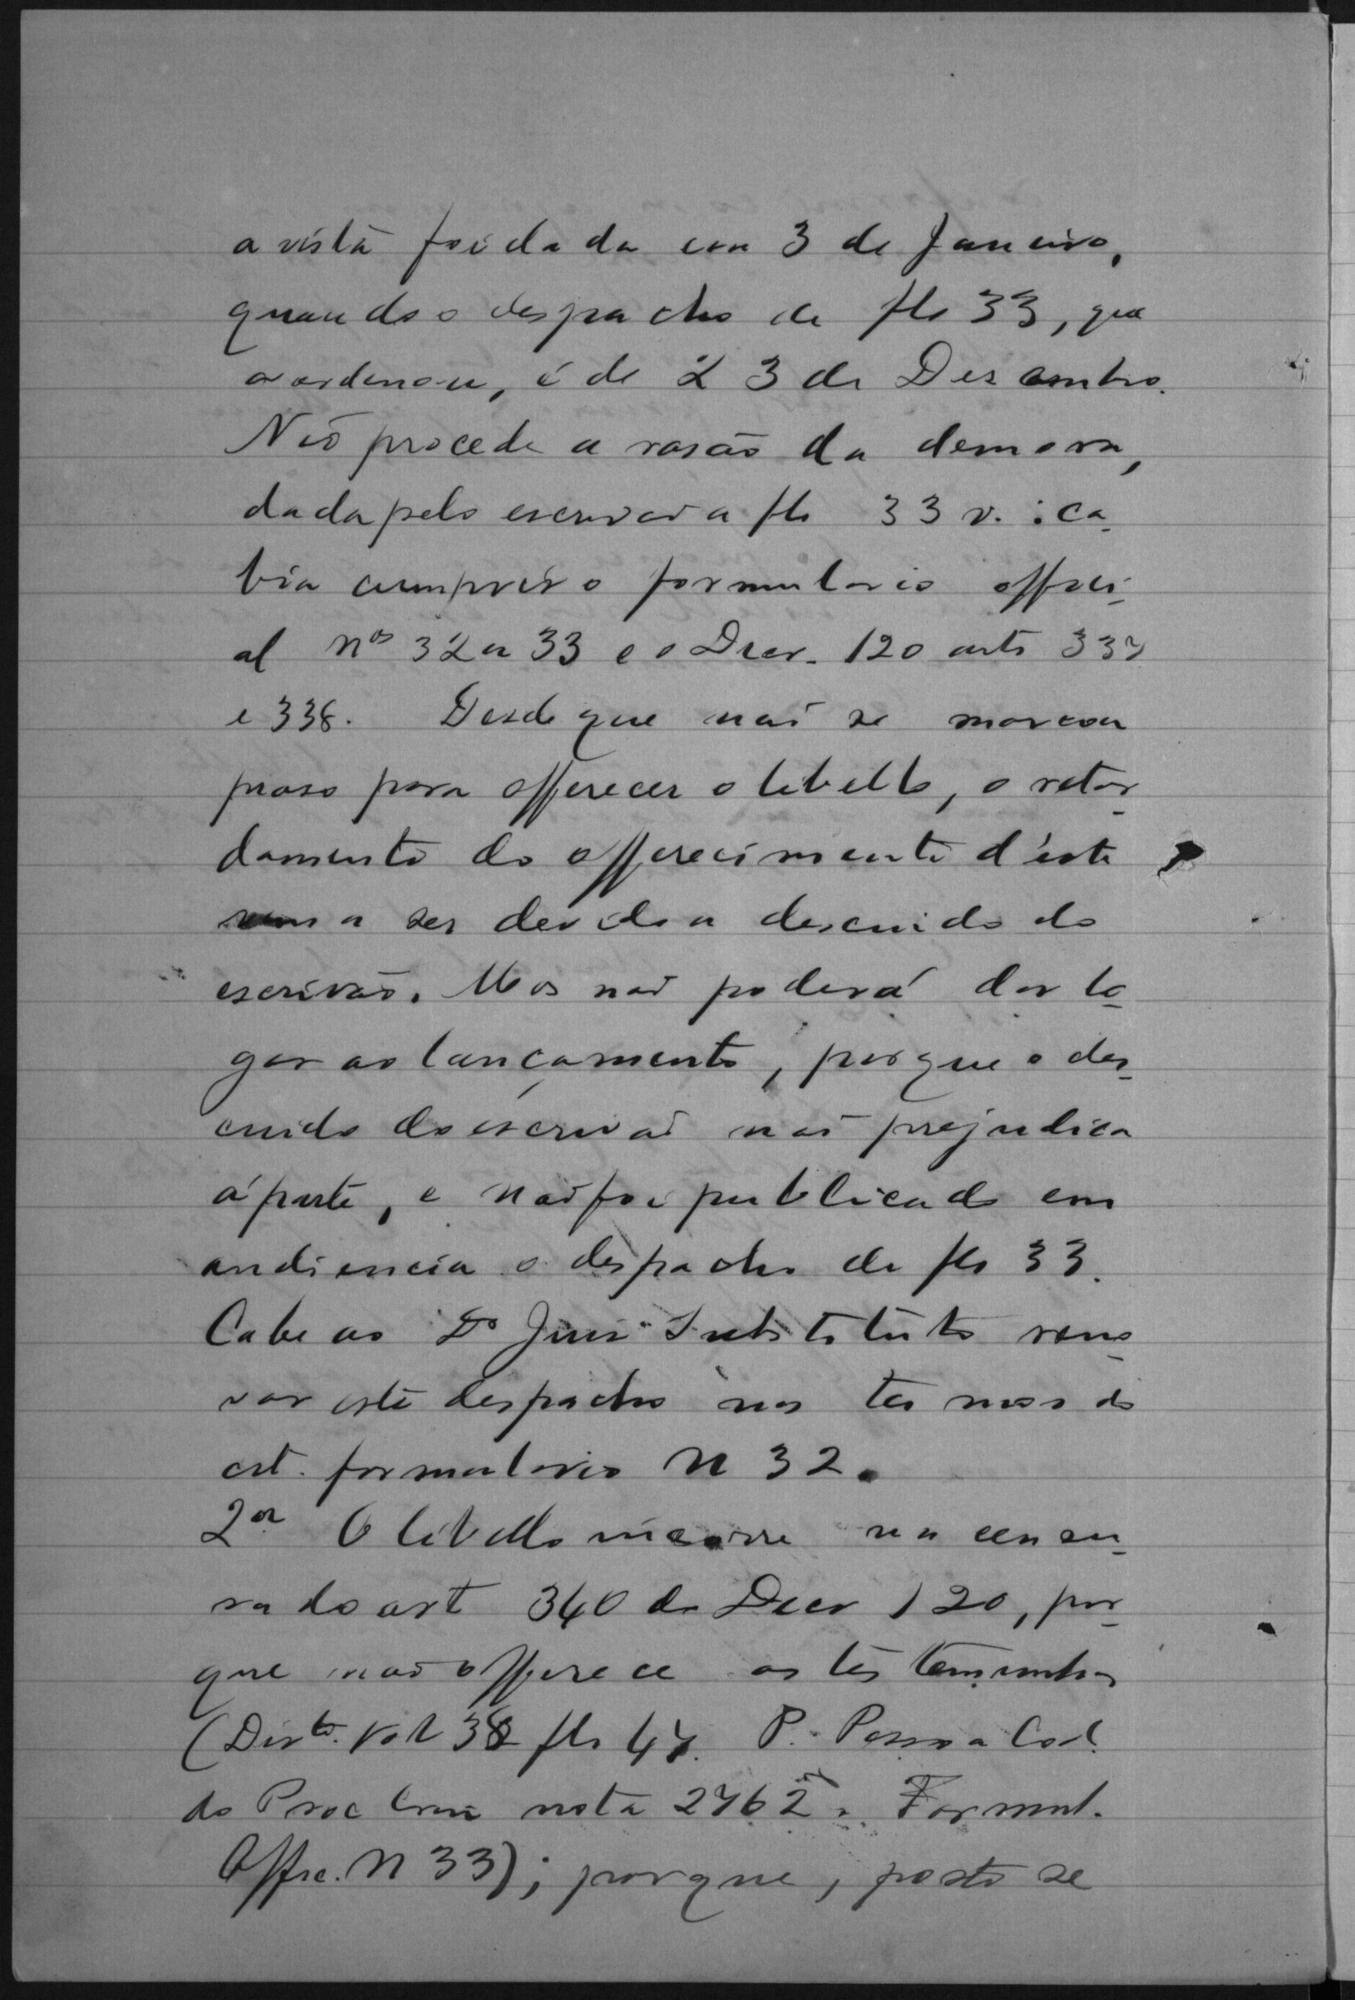 a vista foi dada em 3 de Janeiro,
quando o despacho de fls 33, que
a ordenou, é de 23 de Dezembro.
Não procede a rasão da demora,
dada pelo escrivão a fls 33 v. : ca-
bia cumprir o formulario offici-
al nos 32 a 33 e o Decr. 120 arts 337
e 338. Desde que não se marcou
praso para offerecer o libello, o retar-
damento do offerecimento d'este
vem a ser devido a descuido do
escrivão. Mas não poderá dar lo-
gar ao lançamento, porque o des-
cuido do escrivão não prejudica
á parte, e não foi publicado em
audiencia o despacho de fls 33.
Cabe ao Dr Juiz Substituto reno-
var este despacho nos termos do
cit. formulario N 32.
2a O libello incorre na censu-
ra do art 340 do Decr 120, por-
que não offerece as testemunhas
(Dirto. Vol 38 fls 47. P. Pessoa Cod.
do Proc Crim nota 2762. Formul.
Offic. N 33); porque, posto se